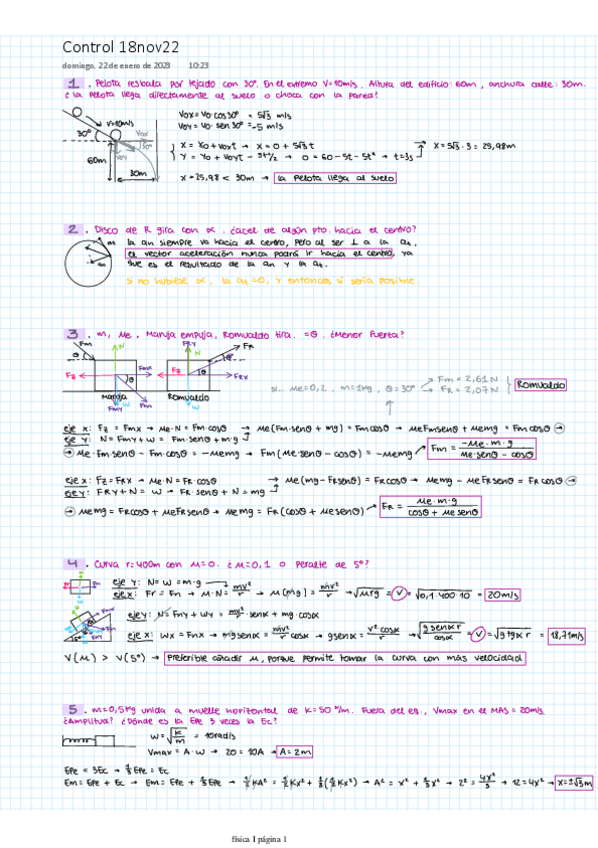 Control 18nov22
domingo, 22 de enero de 2023 10:23
1. Pelota resbala por tejado con 30º. En el extremo V=10m/s. Altura del edificio: 60m, anchura calle: 30m.
¿La pelota llega directamente al suelo o choca con la pared?
V=10m/s
30º
Vox
30º
Voy
60m
30m
Vox = Vo·cos30º = 5√3 m/s
Voy = Vo·sen30º = -5 m/s
x = xo + voxt → x = 0 + 5√3t
y = yo + voyt - gt²/2 → 0 = 60 - 5t - 5t² → t = 3s
x = 5√3 · 3 = 25,98m
x = 25,98 < 30m → la pelota llega al suelo
2. Disco de R gira con α. ¿acel de algún pto. hacia el centro?
la an siempre va hacia el centro, pero al ser ⊥ a la at,
el vector aceleración nunca podrá ir hacia el centro, ya
que es el resultado de la an y la at.
si no hubiese α, la at=0, y entonces sí sería posible.
3. m, μe. Maruja empuja, Romualdo tira. =θ. ¿Menor fuerza?
Maruja
Romualdo
si... μe=0,2. m=1kg, θ=30º
Fm = 2,61 N
FR = 2,07 N
Romualdo
eje x: Fz = Fmx → μe·N = Fm·cosθ → μe(Fm·senθ + mg) = Fmcosθ → μeFmsenθ + μemg = Fmcosθ
eje y: N = Fmy + W = Fm·senθ + m·g
→ μe·Fm·senθ - Fm·cosθ = -μemg → Fm(μe·senθ - cosθ) = -μemg → Fm = -μe·m·g / μe·senθ - cosθ
eje x: Fz = FRx → μe·N = FR·cosθ → μe(mg - FRsenθ) = FRcosθ → μemg - μeFRsenθ = FRcosθ
eje y: FRY + N = W → FR·senθ + N = mg
→ μemg = FRcosθ + μeFRsenθ → μemg = FR(cosθ + μesenθ) → FR = μe·m·g / cosθ + μesenθ
4. Curva r=400m con μ=0. ¿μ=0,1 o peralte de 5º?
eje y: N = W = m·g
eje x: Fr = Fn → μ·N = mv²/r → μ(mg) = mv²/r → √μrg = V = √0,1·400·10 = 20m/s
eje y: N = Fny + Wy = mv²/r·senα + mg·cosα
eje x: Wx = Fnx → mgsenα = mv²/r cosα → gsenα = v²cosα/r → √g senα r/cosα = V = √g tgα r = 18,71m/s
V(μ) > V(5º) → Preferible añadir μ, porque permite tomar la curva con más velocidad
5. m=0,5kg unida a muelle horizontal de K=50 N/m. Fuera del eq., Vmax en el MAS = 20m/s.
¿Amplitud? ¿Dónde es la Epe 3 veces la Ec?
W = √K/m = 10rad/s
Vmax = A·W → 20 = 10A → A = 2m
Epe = 3Ec → 1/3 Epe = Ec
Em = Epe + Ec → Em = Epe + 1/3 Epe → 1/2KA² = 1/2Kx² + 1/3(1/2Kx²) → A² = x² + 1/3x² → 2² = 4x²/3 → 12 = 4x² → x = ±√3m
física I página 1